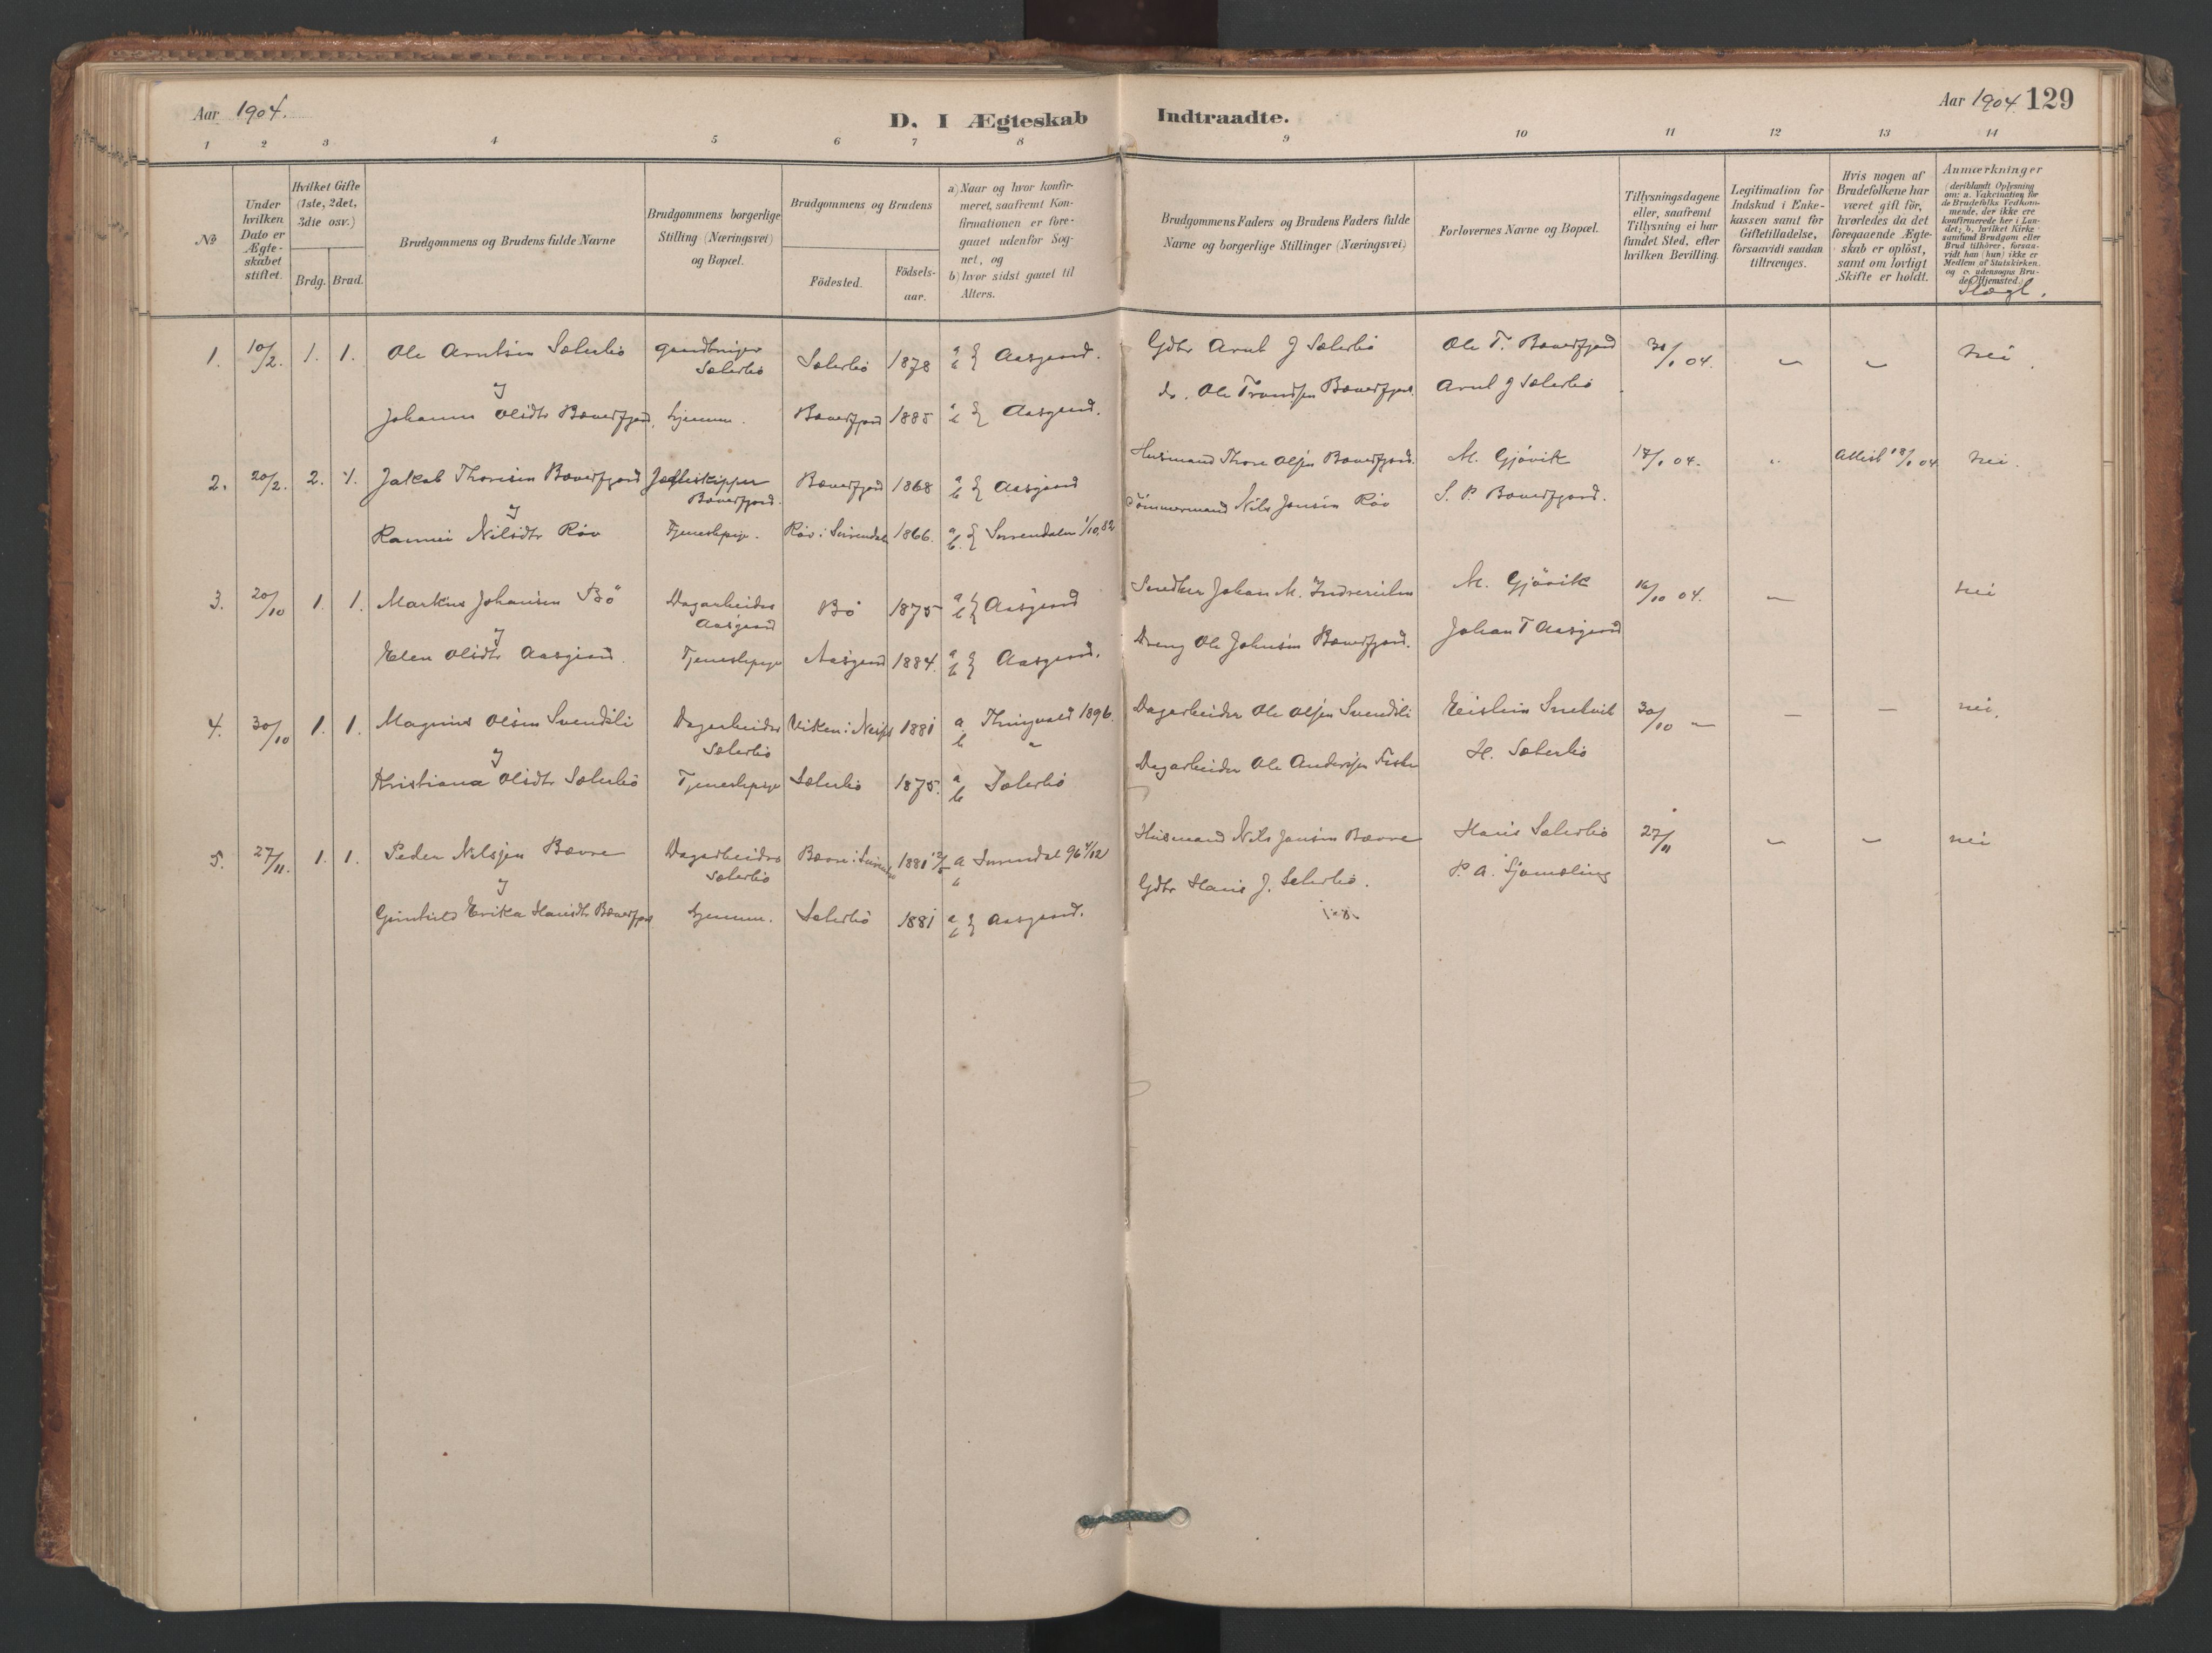 Aar 1904.
D. I Ægteskab Indtraadte.
Aar 1904. 129
1 2 3 4 5 6 7 8 9 10 11 12 13 14
No
Under hvilken Dato er Ægteskabet stiftet.
Hvilket Gifte (1ste, 2det, 3die osv.)
Brdg. Brud.
Brudgommens og Brudens fulde Navne
Brudgommens borgerlige Stilling (Næringsvei) og Bopæl.
Brudgommens og Brudens
Födested. Födselsaar.
a) Naar og hvor konfirmeret, saafremt Konfirmationen er foregaaet udenfor Sognet, og
b) hvor sidst gaaet til Alters.
Brudgommens Faders og Brudens Faders fulde Navne og borgerlige Stillinger (Næringsvei)
Forlovernes Navne og Bopæl.
Tillysningsdagene eller, saafremt Tillysning ei har fundet Sted, efter hvilken Bevilling.
Legitimation for Indskud i Enkekassen samt for Giftetilladelse, forsaavidt saadan tiltrænges.
Hvis nogen af Brudefolkene har været gift för, hvorledes da det foregaaende Ægteskab er oplöst, samt om lovligt Skifte er holdt.
Anmærkninger (deriblandt Oplysning om: a. Vakcination for de Brudefolks Vedkommende, der ikke ere konfirmerede her i Landet; b. hvilket Kirkesamfund Brudgom eller Brud tilhörer, forsaavidt han (hun) ikke er Medlem af Statskirken. og c. udensogns Brudes Hjemsted.)
Slægt.
1. 10/2. 1. 1. Ole Arntsen Sæterbö Gaardbruger Sæterbö Sæterbö 1878 a b } Aasgaard. Gdbr Arnt J Sæterbö Ole T. Bæverfjord 31/1 04. " " nei
&
Johanna Olsdtr Bæverfjord. hjemme. Bæverfjord 1885 a b } Aasgaard. do. Ole Trondsen Bæverfjord. Arnt J Sæterbö
2. 20/2. 2. 1. Jakob Thoresen Bæverfjord Jægtskipper Bæverfjord. Bæverfjord 1868 a b } Aasgaard Husmand Thore Olsen Bæverfjord. M. Gjövik 17/1 04. " Attest 18/1 04 nei.
&
Rannei Nilsdtr Röv Tjenestepige. Röv i Surendal 1866. a b. } Surendalen 1/10, 82 Tömmermand Nils Jonsen Röv S. P. Bæverfjord.
3. 20/10 1. 1. Markus Johansen Bö Dagarbeider Aasgaard Bö 1875 a b } Aasgaard Snedker Johan M. M. Gjövik 16/10 04. " nei
&
Elen Olsdtr Aasgaard. Tjenestepige Aasgaard 1884. a b } Aasgaard. Dreng Ole Johnsen Bæverfjord. Johan T Aasgaard
4. 30/10 1. 1. Magnus Olsen Svendsli Dagarbeider Sæterbö Viken i 1881 a Thingvold 1896. b " Dagarbeider Ole Olsen Svendsli Eistein Snekvik 30/10 " – – nei.
&
Kristiana Olsdtr Sæterbö Tjenestepige Sæterbö 1875. a b Sæterbö Dagarbeider Ole Andersen H. Sæterbö
5. 27/11. 1. 1. Peder Nilsjen Bævre Dagarbeider Sæterbö Bævre i Surendal 1881 12/5 a Surendal 96 4/12 b Husmand Nils Jonsen Bævre Hans Sæterbö 27/11 " " nei
&
Gunhild Erika Hansdtr Bæverfjord hjemme. Sæterbö 1881 a b } Aasgaard. Gdbr Hans J. Sæterbö. P. A.